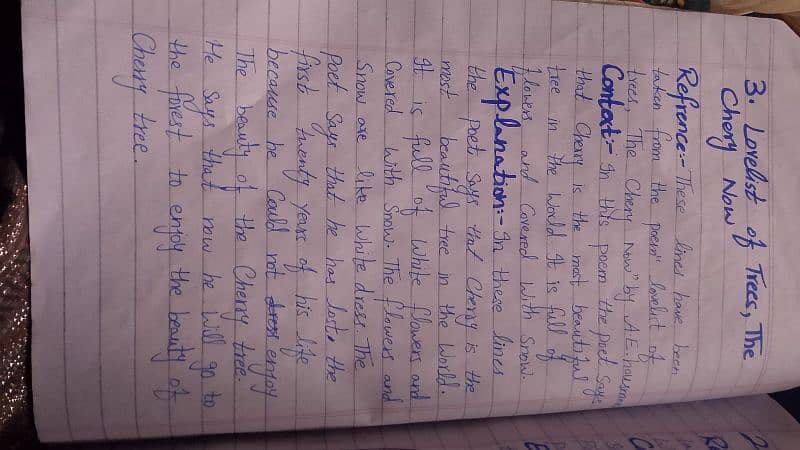 3. Lovelist of Trees, The
Chery Now
Refrence:- These lines have been
taken from the poem "lovelist of
trees, The Chery Now" by A.E. housman
Context:- In this poem the poet says
that Cherry is the most beautiful
tree in the world It is full of
flowers and Covered with Snow.
Explanation:- In these lines
the poet says that Cherry is the
most beautiful tree in the world.
It is full of White flowers and
Covered with Snow. The flowers and
Snow are like White dress. The
Poet Says that he has lost the
first twenty years of his life
because he Could not enjoy
The beauty of the Cherry tree.
He Says that now he will go to
the forest to enjoy the beauty of
Cherry tree.
2
R
C
E